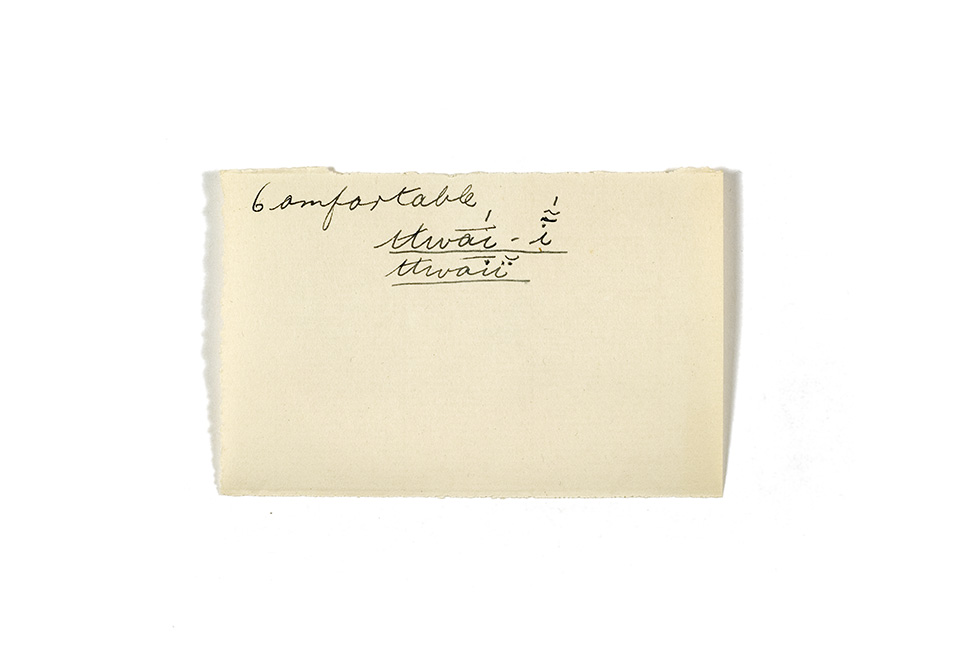 Comfortable
ttwā́i - ĩ̆́
ttwāiĭ